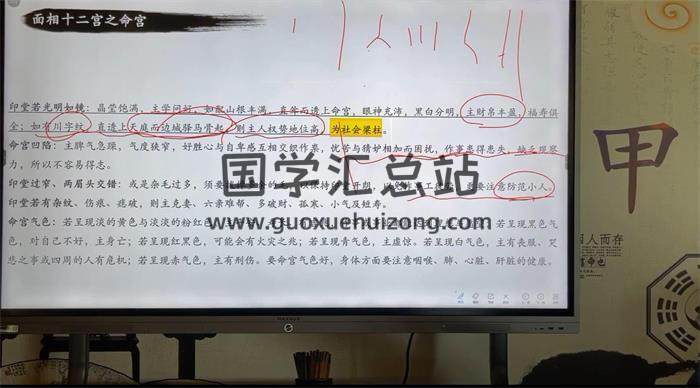 面相十二宫之命宫
印堂若光明如镜：晶莹饱满，主学问好，如配山根丰满，直耸而透上命宫，眼神充沛，黑白分明，主财帛丰盈，福寿俱
全；如有川字纹，直透上天庭而边城驿马骨起，则主人权势地位高，为社会梁柱。
命宫凹陷：主脾气急躁，气度狭窄，好胜心与自卑感互相交织作祟，优劣与精妒相加而困扰，作事患得患失，缺乏理察
力，所以不容易得志。
印堂过窄、两眉头交错：或是杂毛过多，须要 保持印堂开朗，
要注意防范小人。
印堂若有杂纹、伤痕、疤破，则主克妻、六亲难帮、多破财、孤寒、小气及短寿。
命宫气色：若呈现淡的黄色与淡淡的粉红色，
若呈现黑色气
色，对自己不好，主身亡；若呈现红黑色，可能会有火灾之兆；若呈现青气色，主虚惊。若呈现白气色，主有丧服、哭
悲之事或四周的人有危机；若呈现赤气色，主有刑伤。要命宫气色好，身体方面要注意咽喉、肺、心脏、肝脏的健康。
国学汇总站
www.guoxuehuizong.com
甲
因人而存